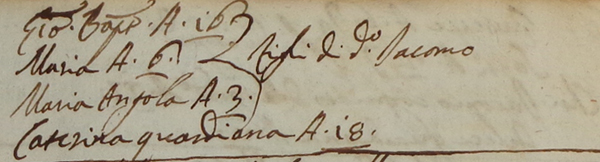 Gio: Bapt. A. 16
Maria A. 6. figli di d.o Jacomo
Maria Angola A. 3.
Caterina guardiana A. 18.